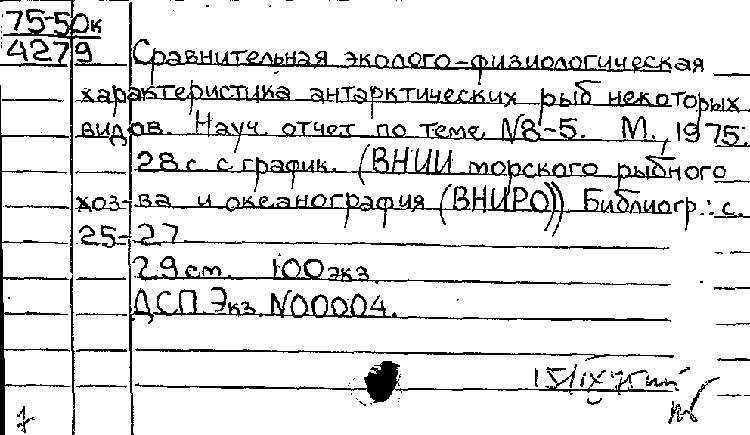 75-50к
4279
Сравнительная эколого-физиологическая
характеристика антарктических рыб некоторых
видов. Науч. отчет по теме N8-5. М., 1975.
28 с. с график. (ВНИИ морского рыбного
хоз-ва и океанография (ВНИРО)) Библиогр.: с.
25-27
29 см. 100 экз.
ДСП. Экз. N00004.